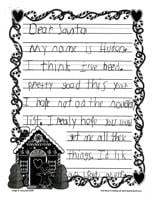 Dear Santa
My name is Hudson.
I think I've been
pretty good this year
I hope not on the naughty
list. I really hope you
get me all these
things. I'd like